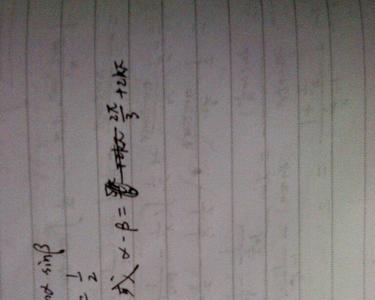 α sinβ
= 1/2
或 α-β = 2π/3 + 2kπ